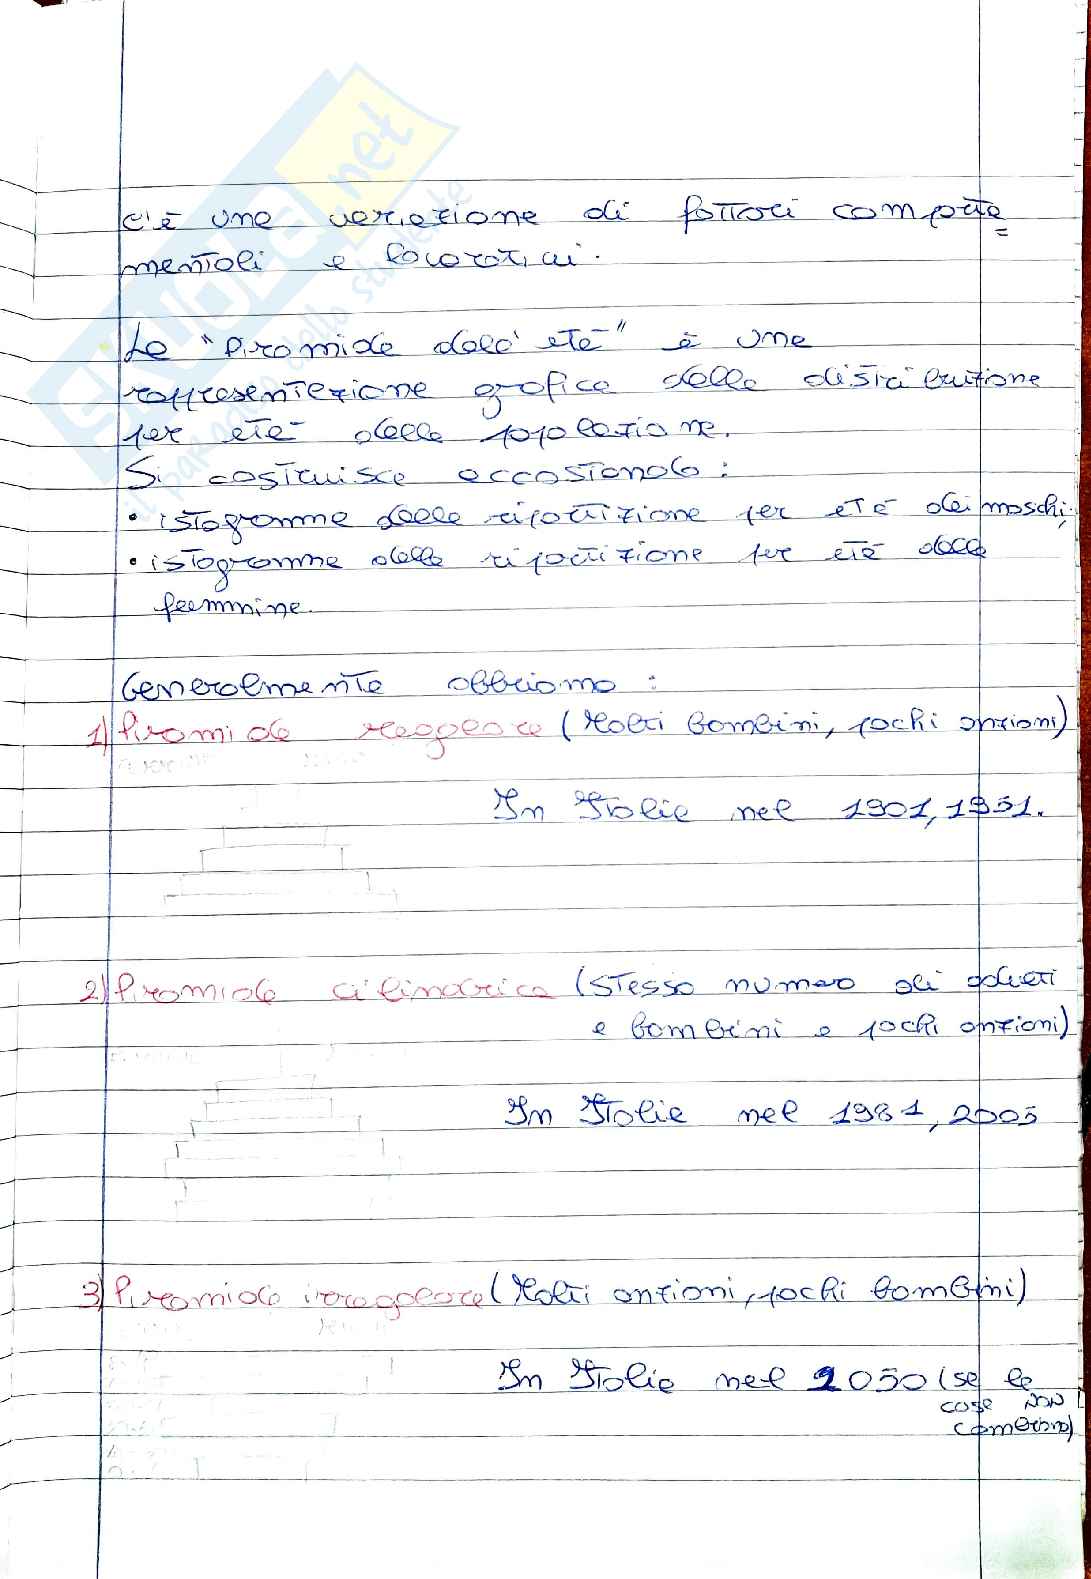 C'è una variazione di fattori comporta
mentali e
La "Piramide dell'età" è una
rappresentazione grafica della distribuzione
per età della popolazione.
Si costruisce accostando:
• istogramma della ripartizione per età dei maschi;
• istogramma della ripartizione per età delle
femmine.
Generalmente abbiamo:
1) Piramide regolare (Molti bambini, pochi anziani)
In Italia nel 1901, 1951.
2) Piramide cilindrica (stesso numero di adulti
e bambini e pochi anziani)
In Italia nel 1981, 2005
3) Piramide irregolare (Molti anziani, pochi bambini)
In Italia nel 2050 (se le
cose NON
cambiano)
SKUOLA.net
il paradiso dello studente